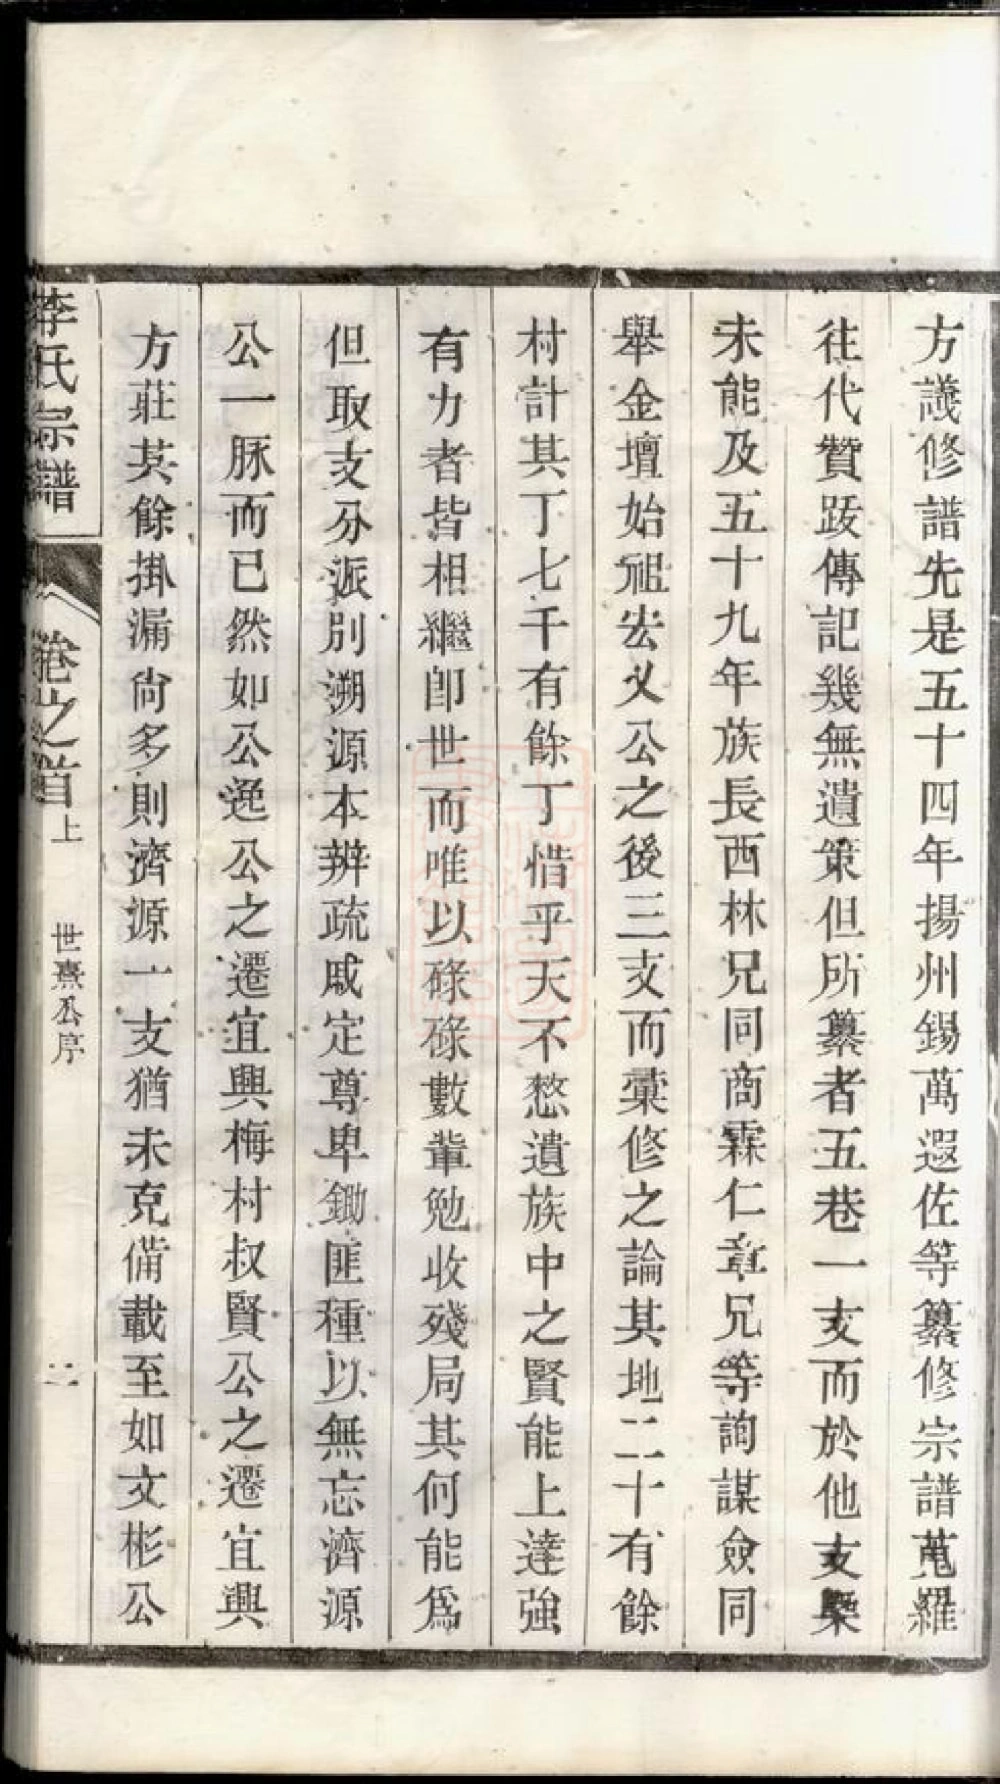 方議修譜先是五十四年揚州錫萬遐佐等纂修宗譜蒐羅
往代贊跋傳記幾無遺策但所纂者五巷一支而於他支槩
未能及五十九年族長西林兄同商霖仁章兄等詢謀僉同
舉金壇始祖宏义公之後三支而彙修之論其地二十有餘
村計其丁七千有餘丁惜乎天不憗遺族中之賢能上達強
有力者皆相繼卽世而唯以碌碌數輩勉收殘局其何能爲
但取支分派別溯源本辨疏戚定尊卑鋤匪種以無忘濟源
公一脉而已然如公逸公之遷宜興梅村叔賢公之遷宜興
方莊其餘掛漏尚多則濟源一支猶未克備載至如文彬公
李氏宗譜
卷之首上
世熹公序
二